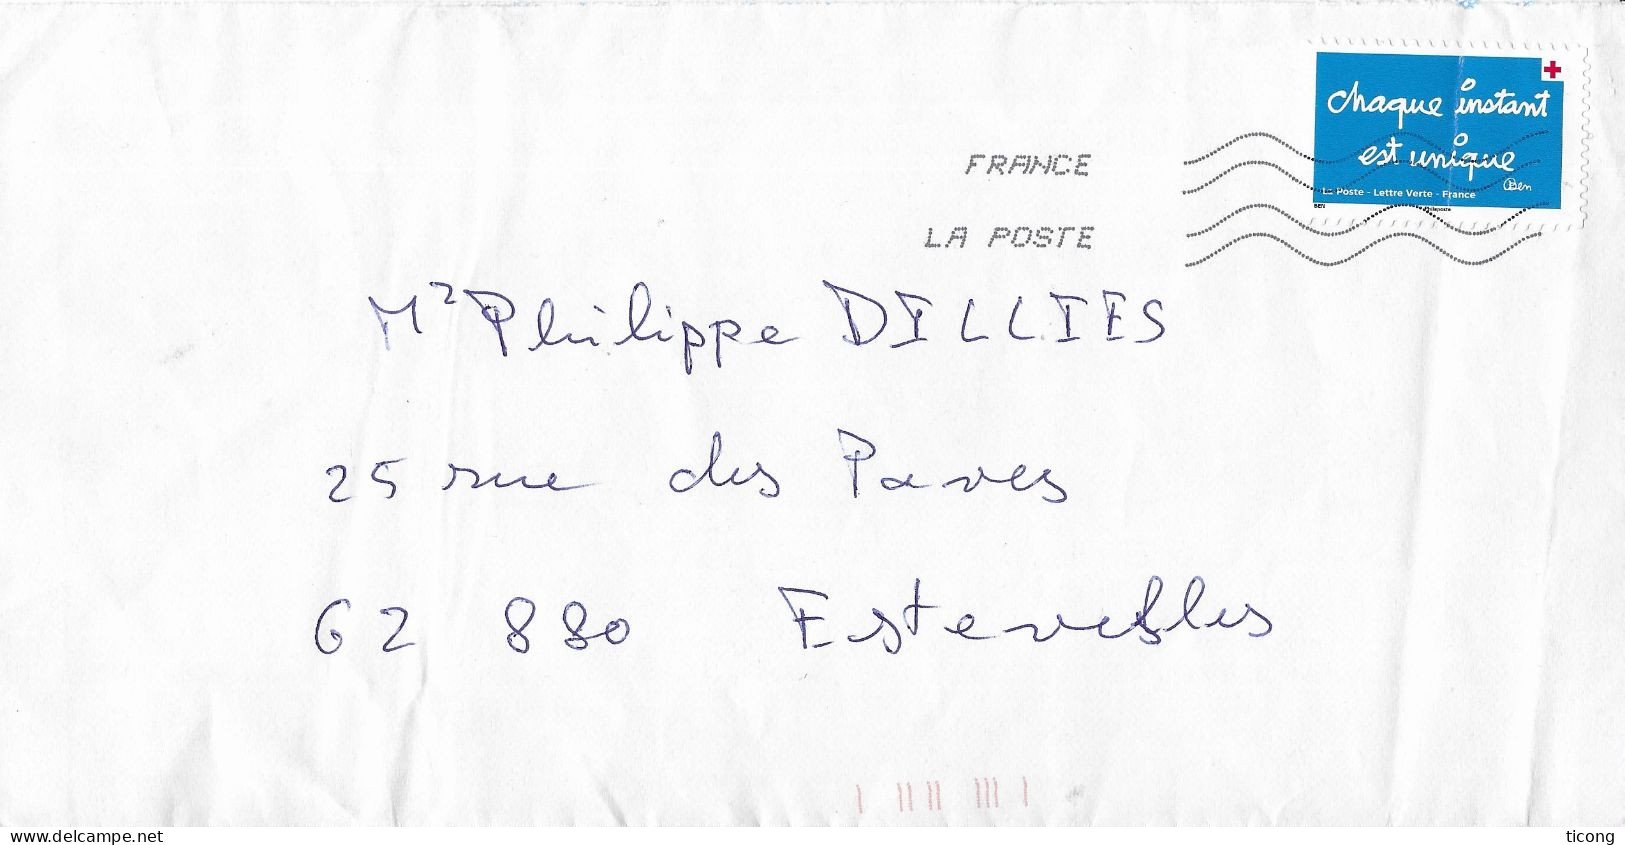 chaque instant
est unique
Ben
La Poste - Lettre Verte - France
BEN
Philaposte
FRANCE
LA POSTE
Mr Philippe DILLIES
25 rue des Paves
62 880 Estevelles
www.delcampe.net
ticong